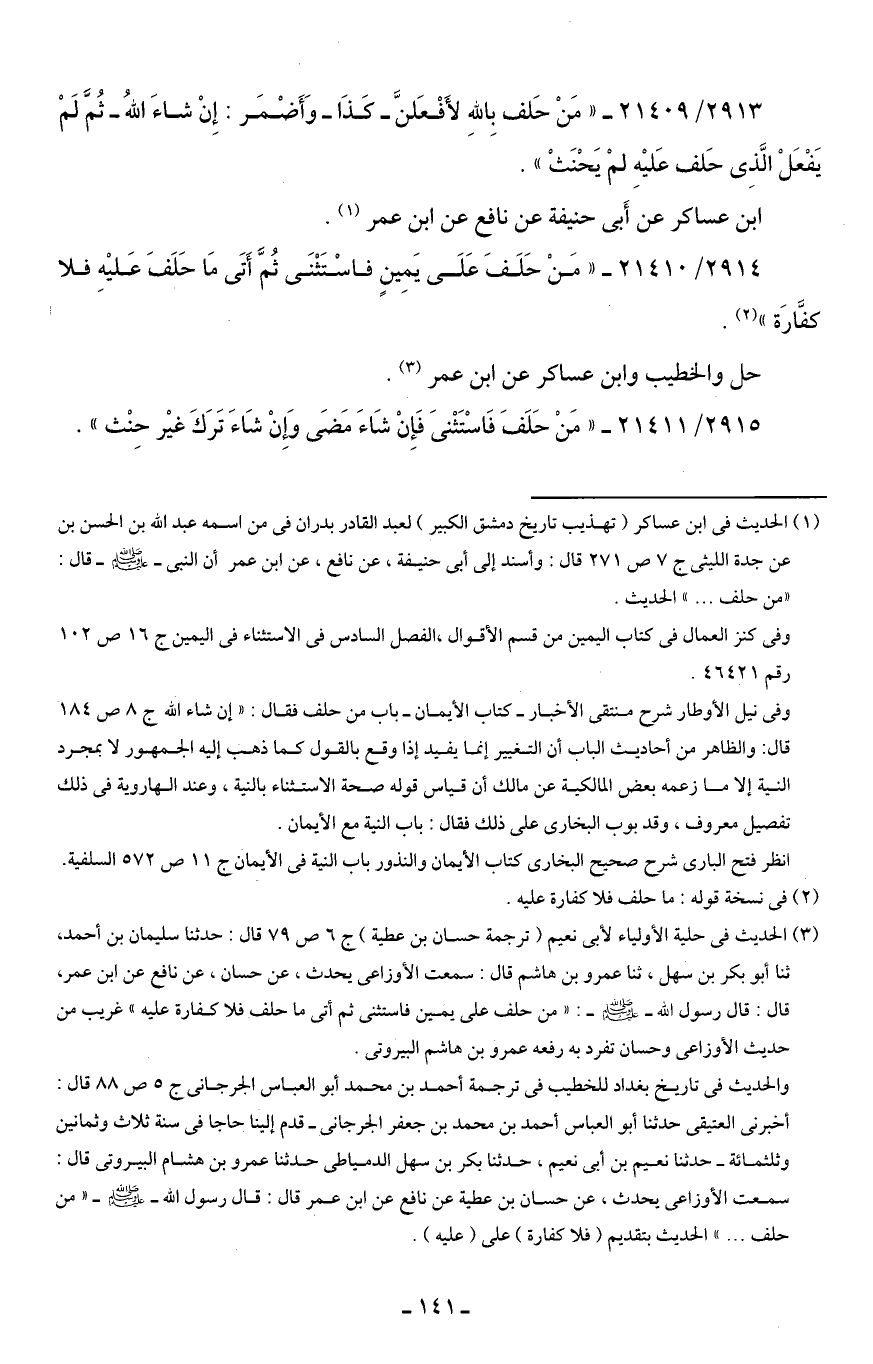 ٢١٤٠٩/٢٩١٣ ـ « مَنْ حَلَف بِاللهِ لأَفْعَلَنَّ ـ كَذَا ـ وَأَضْمَر : إِنْ شاءَ اللهُ ـ ثُمَّ لَمْ
يَفْعَلْ الَّذِى حَلَف عَلَيْهِ لمْ يَحْنَثْ » .
ابن عساكر عن أَبى حنيفة عن نافع عن ابن عمر (١) .
٢١٤١٠/٢٩١٤ ـ « مَنْ حَلَفَ عَلَى يَمِينٍ فاسْتَثْنَى ثُمَّ أَتَى مَا حَلَفَ عَلَيْهِ فلا
كفَّارَة »(٢) .
حل والخطيب وابن عساكر عن ابن عمر (٣) .
٢١٤١١/٢٩١٥ ـ « مَنْ حَلَفَ فَاسْتَثْنىَ فَإِنْ شَاءَ مَضَى وَإِنْ شَاءَ تَرَكَ غيْر حِنْث » .
(١) الحديث فى ابن عساكر ( تهذيب تاريخ دمشق الكبير ) لعبد القادر بدران فى من اسمه عبد الله بن الحسن بن
عن جدة الليثى ج ٧ ص ٢٧١ قال : وأسند إلى أبى حنيفة ، عن نافع ، عن ابن عمر أن النبى ـ ﷺ ـ قال :
«من حلف ... » الحديث .
وفى كنز العمال فى كتاب اليمين من قسم الأقوال ،الفصل السادس فى الاستثناء فى اليمين ج ١٦ ص ١٠٢
رقم ٤٦٤٢١ .
وفى نيل الأوطار شرح منتقى الأخبار ـ كتاب الأيمان ـ باب من حلف فقال : « إن شاء الله ج ٨ ص ١٨٤
قال: والظاهر من أحاديث الباب أن التغيير إنما يفيد إذا وقع بالقول كما ذهب إليه الجمهور لا بمجرد
النية إلا ما زعمه بعض المالكية عن مالك أن قياس قوله صحة الاستثناء بالنية ، وعند الهاروية فى ذلك
تفصيل معروف ، وقد بوب البخارى على ذلك فقال : باب النية مع الأيمان .
انظر فتح البارى شرح صحيح البخارى كتاب الأيمان والنذور باب النية فى الأيمان ج ١١ ص ٥٧٢ السلفية.
(٢) فى نسخة قوله : ما حلف فلا كفارة عليه .
(٣) الحديث فى حلية الأولياء لأبى نعيم ( ترجمة حسان بن عطية ) ج ٦ ص ٧٩ قال : حدثنا سليمان بن أحمد،
ثنا أبو بكر بن سهل ، ثنا عمرو بن هاشم قال : سمعت الأوزاعى يحدث ، عن حسان ، عن نافع عن ابن عمر،
قال : قال رسول الله ـ ﷺ ـ : « من حلف على يمين فاستثنى ثم أتى ما حلف فلا كفارة عليه » غريب من
حديث الأوزاعى وحسان تفرد به رفعه عمرو بن هاشم البيروتى .
والحديث فى تاريخ بغداد للخطيب فى ترجمة أحمد بن محمد أبو العباس الجرجانى ج ٥ ص ٨٨ قال :
أخبرنى العتيقى حدثنا أبو العباس أحمد بن محمد بن جعفر الجرجانى ـ قدم إلينا حاجا فى سنة ثلاث وثمانين
وثلثمائة ـ حدثنا نعيم بن أبى نعيم ، حدثنا بكر بن سهل الدمياطى حدثنا عمرو بن هشام البيروتى قال :
سمعت الأوزاعى يحدث ، عن حسان بن عطية عن نافع عن ابن عمر قال : قال رسول الله ـ ﷺ ـ « من
حلف ... » الحديث بتقديم ( فلا كفارة ) على ( عليه ) .
ـ ١٤١ ـ